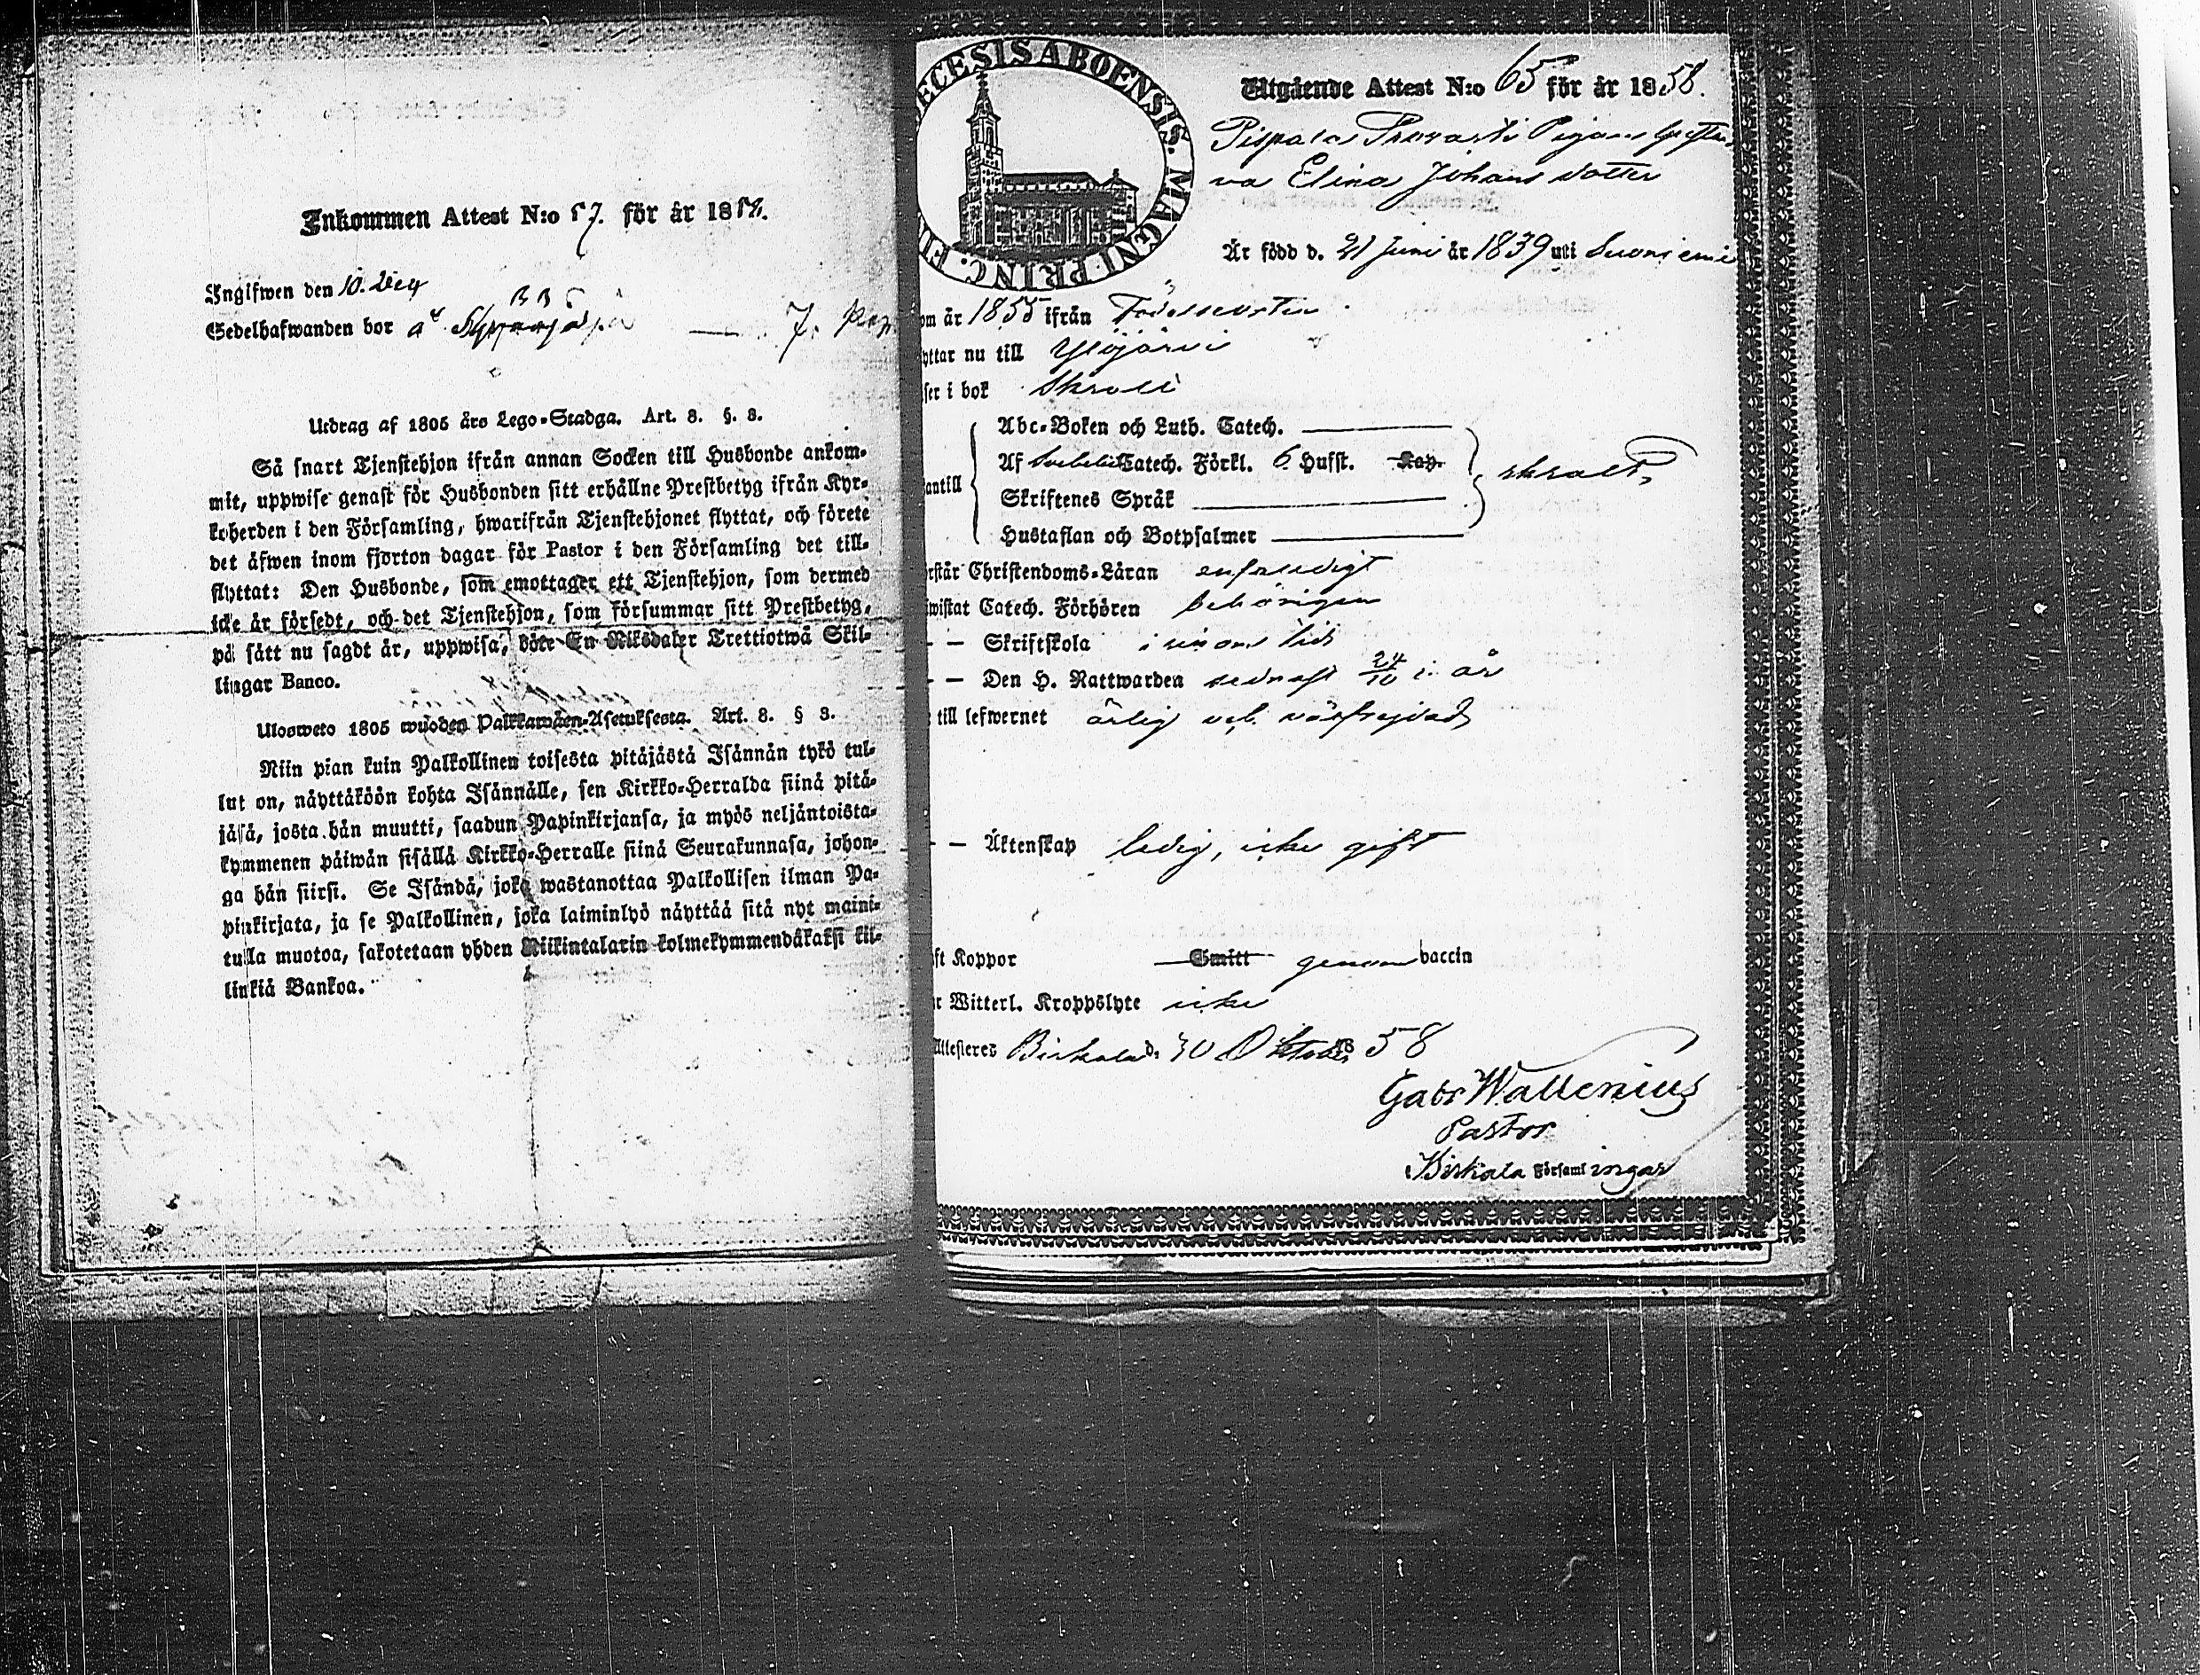 Inkommen Attest N:o 57. för år 1858.
Ingifwen den 10. Decr
Sedelhafwanden bor å
Utdrag af 1805 års Lego-Stadga. Art. 8. §. 8.
Så snart Tjenstehjon ifrån annan Socken till Husbonde ankom-
mit, uppwise genast för Husbonden sitt erhållne Prestbetyg ifrån Kyr-
koherden i den Församling, hwarifrån Tjenstehjonet flyttat, och förete
det äfwen inom fjorton dagar för Pastor i den Församling det till-
flyttat: Den Husbonde, som emottager ett Tjenstehjon, som dermed
icke är försedt, och det Tjenstehjon, som försummar sitt Prestbetyg,
på sätt nu sagdt är, uppwisa, böte En Riksdaler Trettiotwå Skil-
lingar Banco.
Ulosweto 1805 wuoden Palkkawäen-Asetuksesta. Art. 8. § 8.
Niin pian kuin Palkollinen toisesta pitäjästä Isännän tykö tul-
lut on, näyttäköön kohta Isännälle, sen Kirkko-Herralda siinä pitä-
jäsä, josta hän muutti, saadun Papinkirjansa, ja myös neljäntoista-
kymmenen päiwän sisällä Kirkko-Herralle siinä Seurakunnasa, johon-
ga hän siirsi. Se Isändä, joka wastanottaa Palkollisen ilman Pa-
pinkirjata, ja se Palkollinen, joka laiminlyö näyttää sitä nyt maini-
tulla muotoa, sakotetaan yhden Riikintalarin kolmekymmendäkaksi kil-
linkiä Bankoa.
ECESIS ABOENSIS. MAGNI PRINC. FI
Utgående Attest N:o 65 för år 1858.
Pispala Pigan
Elina Johans dotter
Är född d. 21 Juni år 1839 uti Suoniemi
om år 1855 ifrån Födelseorten
yttar nu till Ylöjärvi
ser i bok skralt
Abc-Boken och Luth. Catech.
Af Svebelii Catech. Förkl. 6. Hufst. Kap.
antill skralt,
Skriftenes Språk
Hustaflan och Botpsalmer
rstår Christendoms-Läran enfaldigt
wistat Catech. Förhören behörigen
– – Skriftskola i sinom tid
– – Den H. Nattwarden sednast 24/10 i. år
till lefwernet ärlig och väl frejdad
– – Äktenskap ledig, icke gift
ft Koppor Smitt genom vaccin
r Witterl. Kroppslyte icke
Attesteres Birkala d. 30 Oktober 1858
Gabr Wallenius
Pastor
Birkala Församlingar